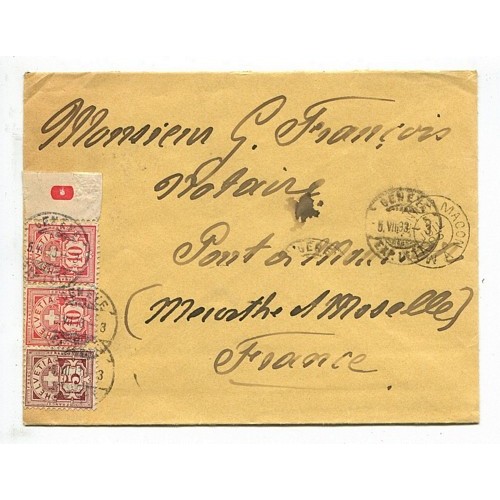 Monsieur G. François
Notaire
Pont à Mousson
(Meurthe et Moselle)
France
GENÈVE
5.VIII.93.-3
MACON
HELVETIA
10
HELVETIA
10
HELVETIA
5